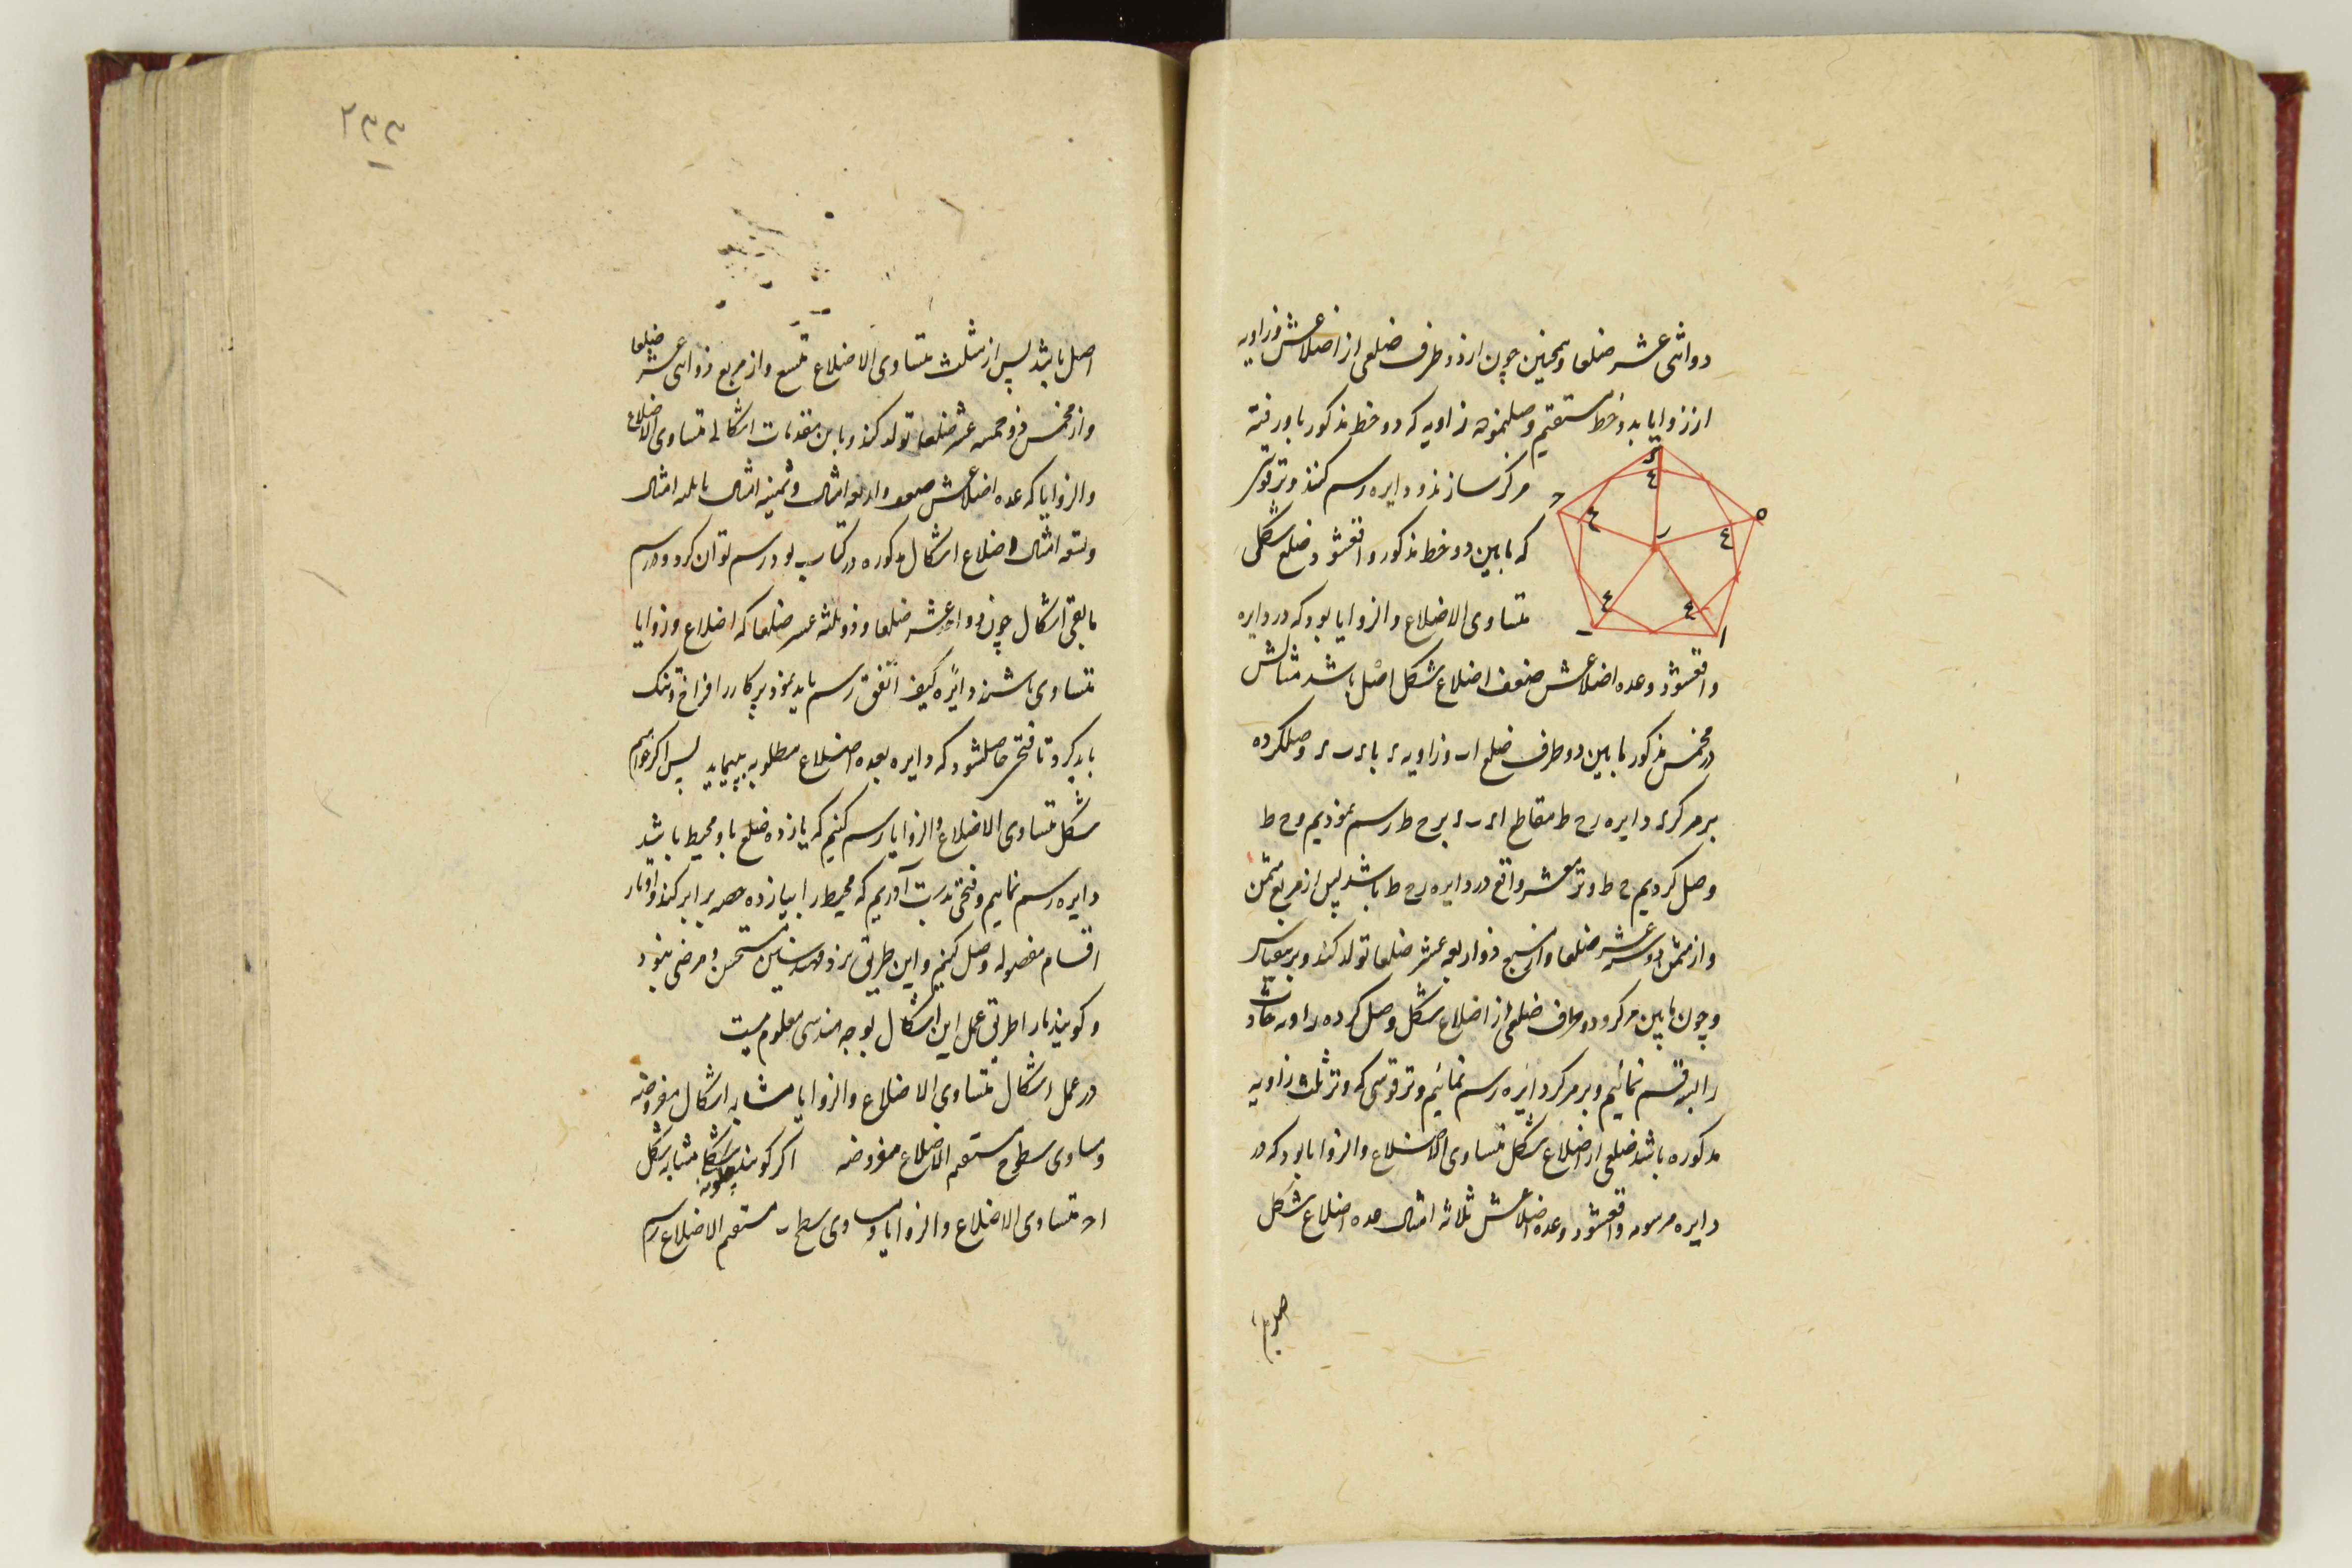 ذواثنی عشر ضلعا و همچنین چون از دو طرف ضلعی از اضلاعش و زاویه
از زوایا بدو خط مستقیم وصلنموده زاویه که دو خط مذکور باو رفته
مرکز سازند و دایره رسم کنند وتر قوسی
که مابین دو خط مذکور واقعشود ضلع شکلی
متساوی الاضلاع والزوایا بود که در دایره
واقعشود و عده اضلاعش ضعف اضلاع شکل اصل باشد مثالش
در مخمس مذکور مابین دو طرف ضلع اب و زاویه وصلکرده
بر مرکز دایره رح ط مقاطع برح ط رسم نمودیم و ح ط
وصل کردیم ح ط وتر معشر واقع در دایره رح ط باشد پس از مربع مثمن
و از مثمن ذو ستة عشر ضلعا و از مسبع ذو اربعه عشر ضلعا تولد کند و برینقیاس
و چون مابین مرکز و دو طرف ضلعی از اضلاع شکل وصل کرده زاویه حادث
را بسه قسم نمائیم و بر مرکز دایره رسم نمائیم وتر قوسی که وتر ثلث زاویه
مذکوره باشد ضلعی از اضلاع شکل متساوی الاضلاع والزوایا بود که در
دایره مرسومه واقعشود و عده اضلاعش ثلاثه امثال عده اضلاع شکل
ر
ح
ه
ا
ب
ع
ع
ع
ع
ع
۲۳۳
اصل باشد پس از مثلث متساوی الاضلاع متسع و از مربع ذو اثنی عشر ضلعا
و از مخمس ذو خمسه عشر ضلعا تولد کند و باین مقدمات اشکال متساوی الاضلاع
والزوایا که عده اضلاعش ضعف و اربعه امثال و ثمنیه امثال یا ثلثه امثال
و تسعه امثال اضلاع اشکال مذکوره در کتاب بود رسم توان کرد و در رسم
مابقی اشکال چون ذو احد عشر ضلعا و ذو ثلثه عشر ضلعا که اضلاع و زوایا
متساوی باشند دایره کیف اتفق رسم باید نمود و پرکار را فراخ و تنک
باید کرد تا فتحی حاصلشود که دایره بعده اضلاع مطلوبه بپیماید پس اکر خواهیم
شکل متساوی الاضلاع والزوایا رسم کنیم که یازده ضلع باو محیط باشد
دایره رسم نمائیم و فتحی بدست آوریم که محیط را بیازده حصه برابر کند و اوتار
اقسام مفصوله وصل کنیم و این طریق نزد مهندسین مستحسن و مرضی نبود
و کویند ما را طریق عمل این اشکال بوجه هندسی معلوم نیست
در عمل اشکال متساوی الاضلاع والزوایا مشابه اشکال مفروضه
و مساوی سطوح مستقیم الاضلاع مفروضه اکر کویند چکونه شکلی مشابه شکل
متساوی الاضلاع والزوایا و مساوی سطح ب مستقیم الاضلاع رسم